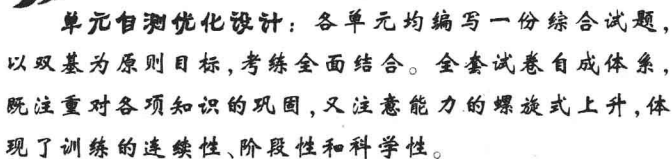 单元自测优化设计：各单元均编写一份综合试题，
以双基为原则目标，考练全面结合。全套试卷自成体系，
既注重对各项知识的巩固，又注意能力的螺旋式上升，体
现了训练的连续性、阶段性和科学性。